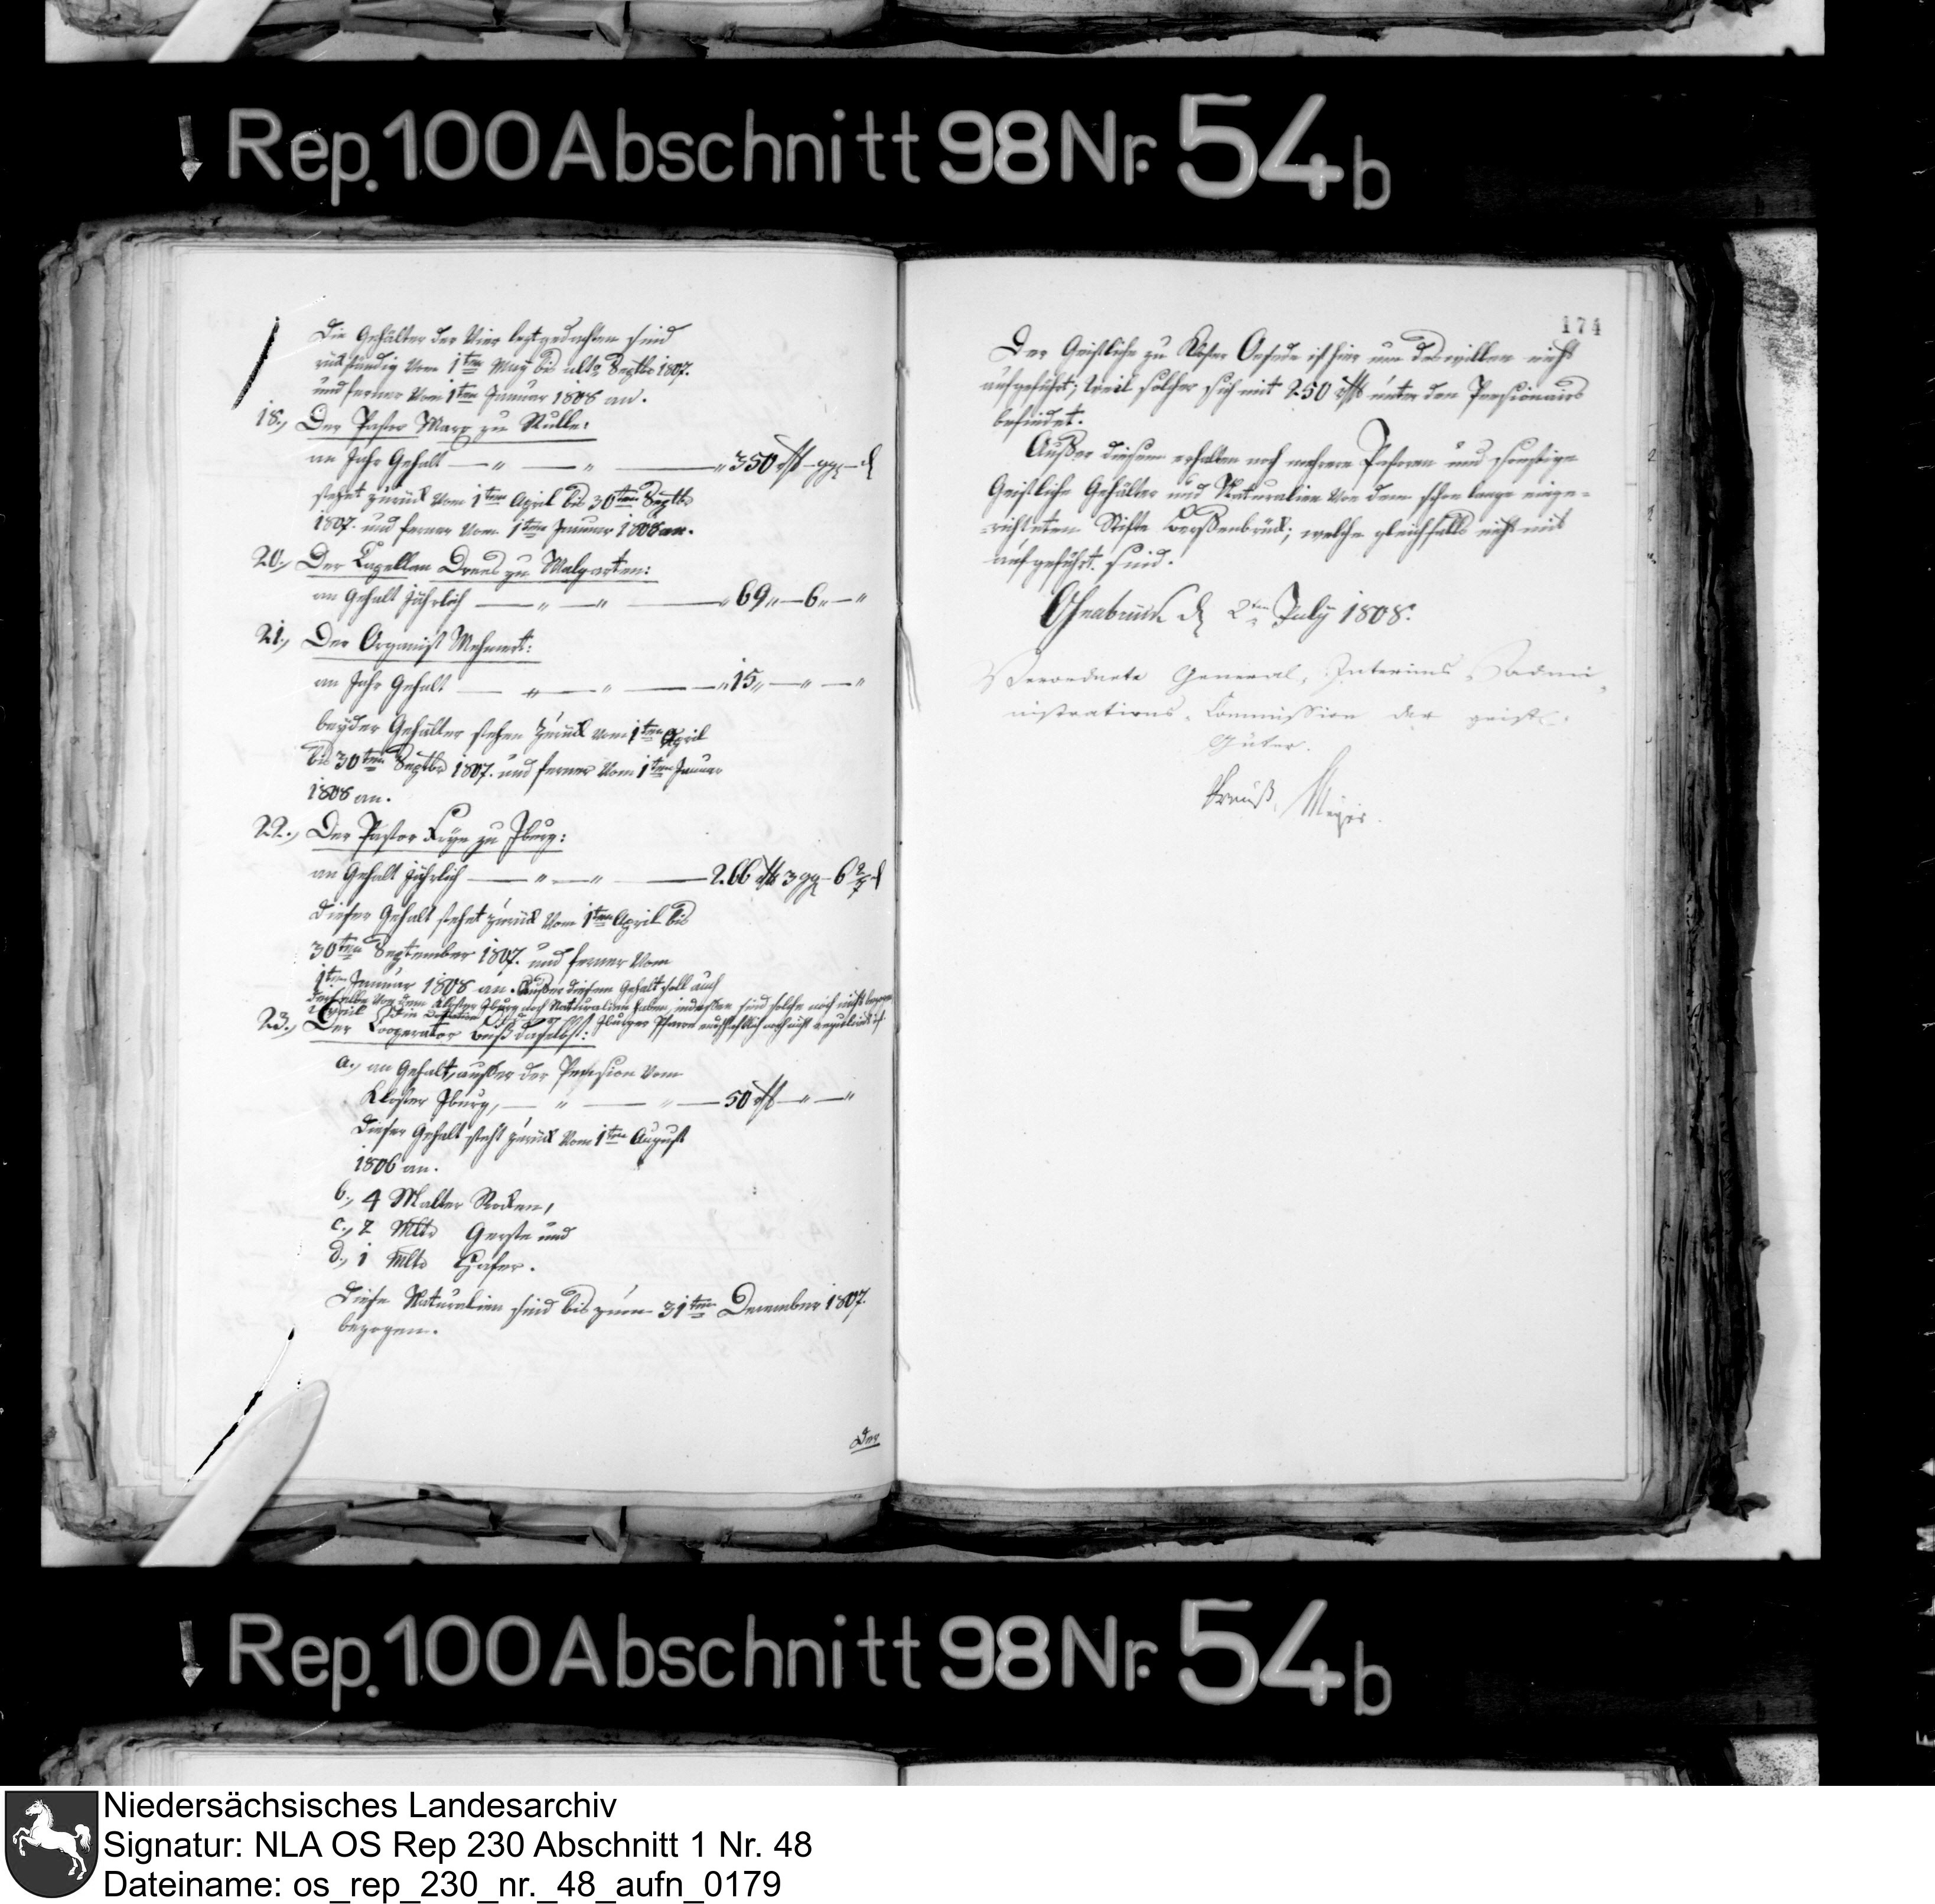 Rep. 100 Abschnitt 98 Nr. 54b
Die Gehälter der Vier letztgedachten sind
rückständig vom 1ten May bis ult. Septbr 1807.
und ferner vom 1ten Januar 1808 an.
18., Der Pastor Marx zu Rulle:
an Jahr Gehalt — „ — „ — „350 rt – gg – d
stehet zurück vom 1ten April bis 30ten Septbr
1807. und ferner vom 1ten Januar 1808 an.
20., Der Capellan Drees zu Malgarten:
an Gehalt jährlich — „ — „ — „ 69 „ – 6 „ – „
21., Der Organist Mehmert:
an Jahr Gehalt — „ — „ — „ 15 „ — „ — „
beyder Gehälter stehen zurück vom 1ten April
bis 30ten Septbr 1807. und ferner vom 1ten Januar
1808 an.
22., Der Pastor zu Iburg:
an Gehalt jährlich — „ — „ — 266 rt 3 gg – 6 2/7 d
Dieser Gehalt stehet zurück vom 1ten April bis
30ten September 1807. und ferner vom
1ten Januar 1808 an. Außer diesem Gehalt soll auch
derselbe von dem Kloster Iburg noch Naturalien haben, indessen sind solche noch nicht bezogen
die Dotation der Iburger Pfarre noch nicht regulirt ist.
23., Der Cooperator daselbst:
a., an Gehalt, außer der Pension vom
Kloster Iburg, — „ — „ — 50 rt — „ — „
Dieser Gehalt steht zurück vom 1ten August
1806 an.
b., 4 Malter Rocken,
c., 2 Mltr Gerste und
d., 1 Mltr Hafer.
Diese Naturalien sind bis zum 31ten December 1807.
bezogen.
Der
174
Der Geistliche zu Kloster Oesede ist hier nur deswillen nicht
aufgeführt; weil solcher sich mit 250 rt unter den Pensionairs
befindet.
Außer diesem erhalten noch mehrere Pastoren und sonstige
Geistliche Gehälter und Naturalien von dem schon lange einge-
richteten Stifte Berßenbrück; welche gleichfalls nicht mit
aufgeführt sind.
Osnabrück d 2ten July 1808.
Verordnete General-Interims-Admi-
nistrations-Commission der geistl.
Güter.
Struß, Meyer.
Rep. 100 Abschnitt 98 Nr. 54b
Niedersächsisches Landesarchiv
Signatur: NLA OS Rep 230 Abschnitt 1 Nr. 48
Dateiname: os_rep_230_nr._48_aufn_0179